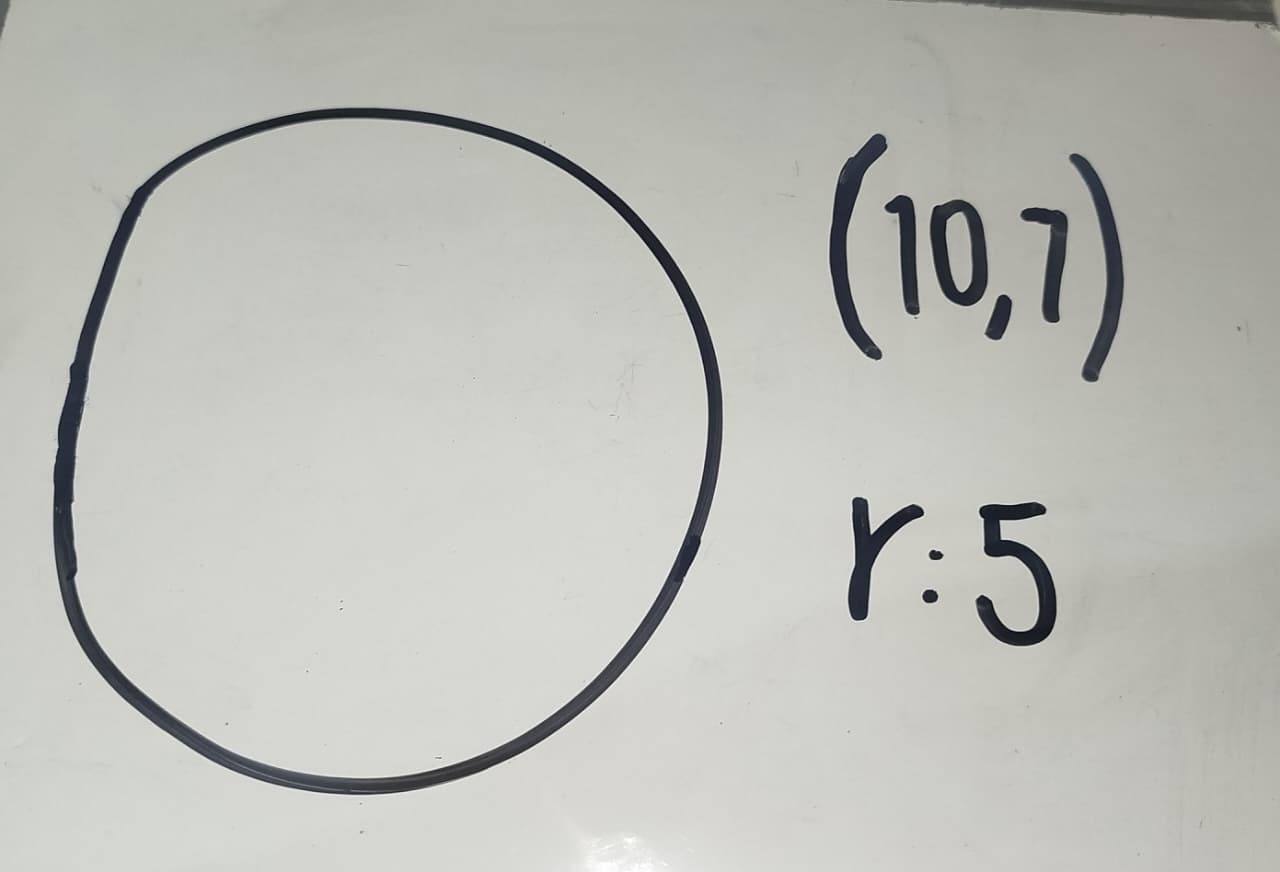 (10,7)
r:5